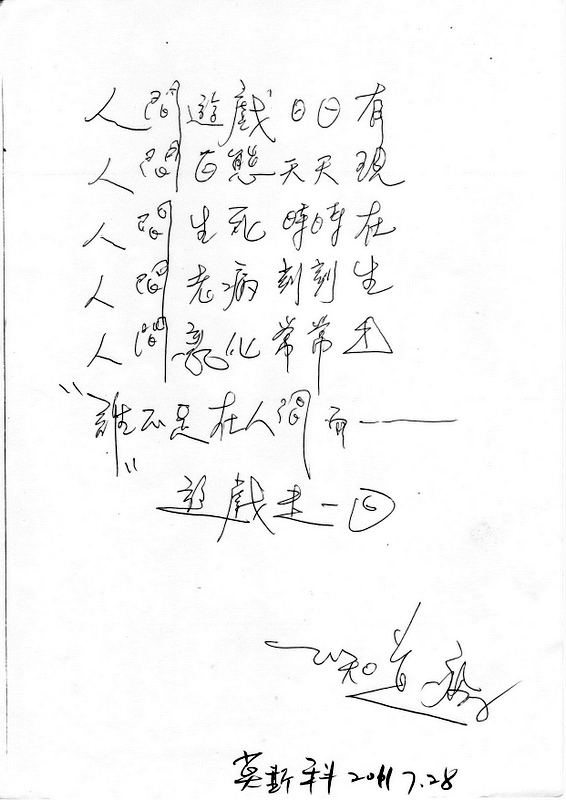 人間遊戲日日有
人間百態天天現
人間生死時時在
人間老病刻刻生
人間亂化常常出
"誰不是在人間而——"
遊戲走一回
知道
莫斯科 2011 7.28